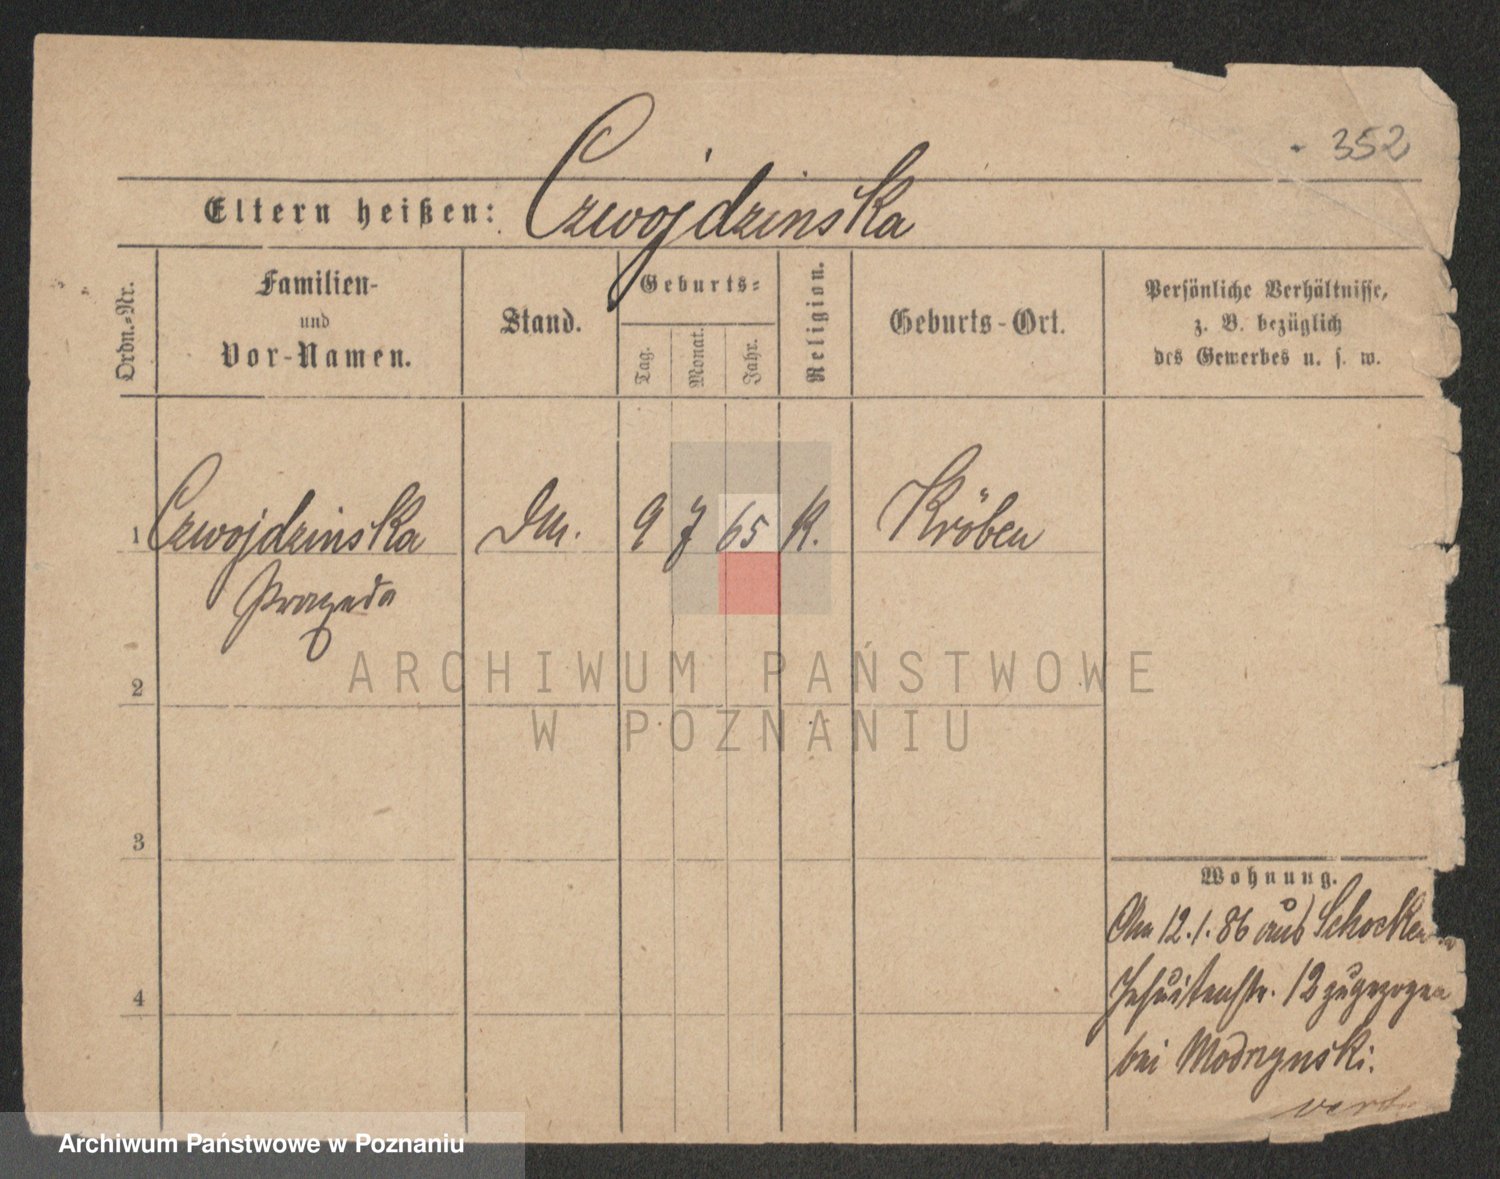 352
Eltern heißen: Czwojdzinska
Ordn.-Nr.
Familien-
und
Vor-Namen.
Stand.
Geburts-
Tag.
Monat.
Jahr.
Religion.
Geburts-Ort.
Persönliche Verhältnisse,
z. B. bezüglich
des Gewerbes u. s. w.
1 Czwojdzinska Dm. 9 7 65 K. Kröben
Praxeda
2
3
4
Wohnung.
Am 12.1.86 aus Schocken
Jesuitenstr. 12 zugezogen
bei Modrzynski.
ARCHIWUM PAŃSTWOWE
W POZNANIU
Archiwum Państwowe w Poznaniu